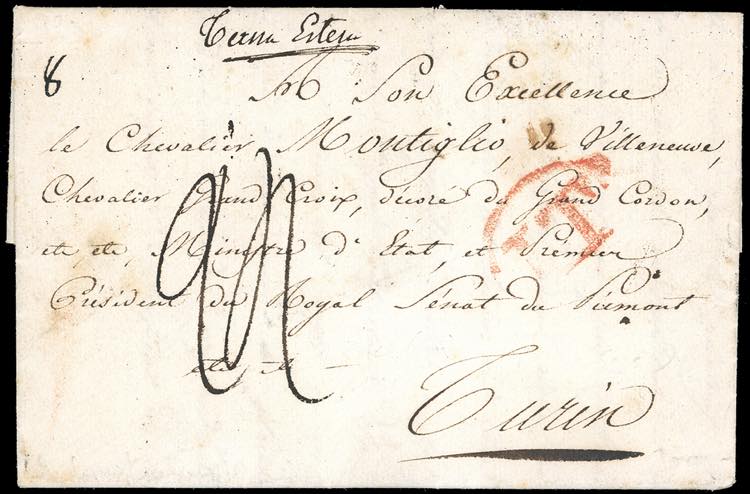 8
A Son Excellence
le Chevalier Montiglio, de Villeneuve,
Chevalier Grand Croix, décoré du Grand Cordon,
etc etc, Ministre d'Etat, et Prémier
Président du Royal Sénat du Piémont
etc etc
Turin
T